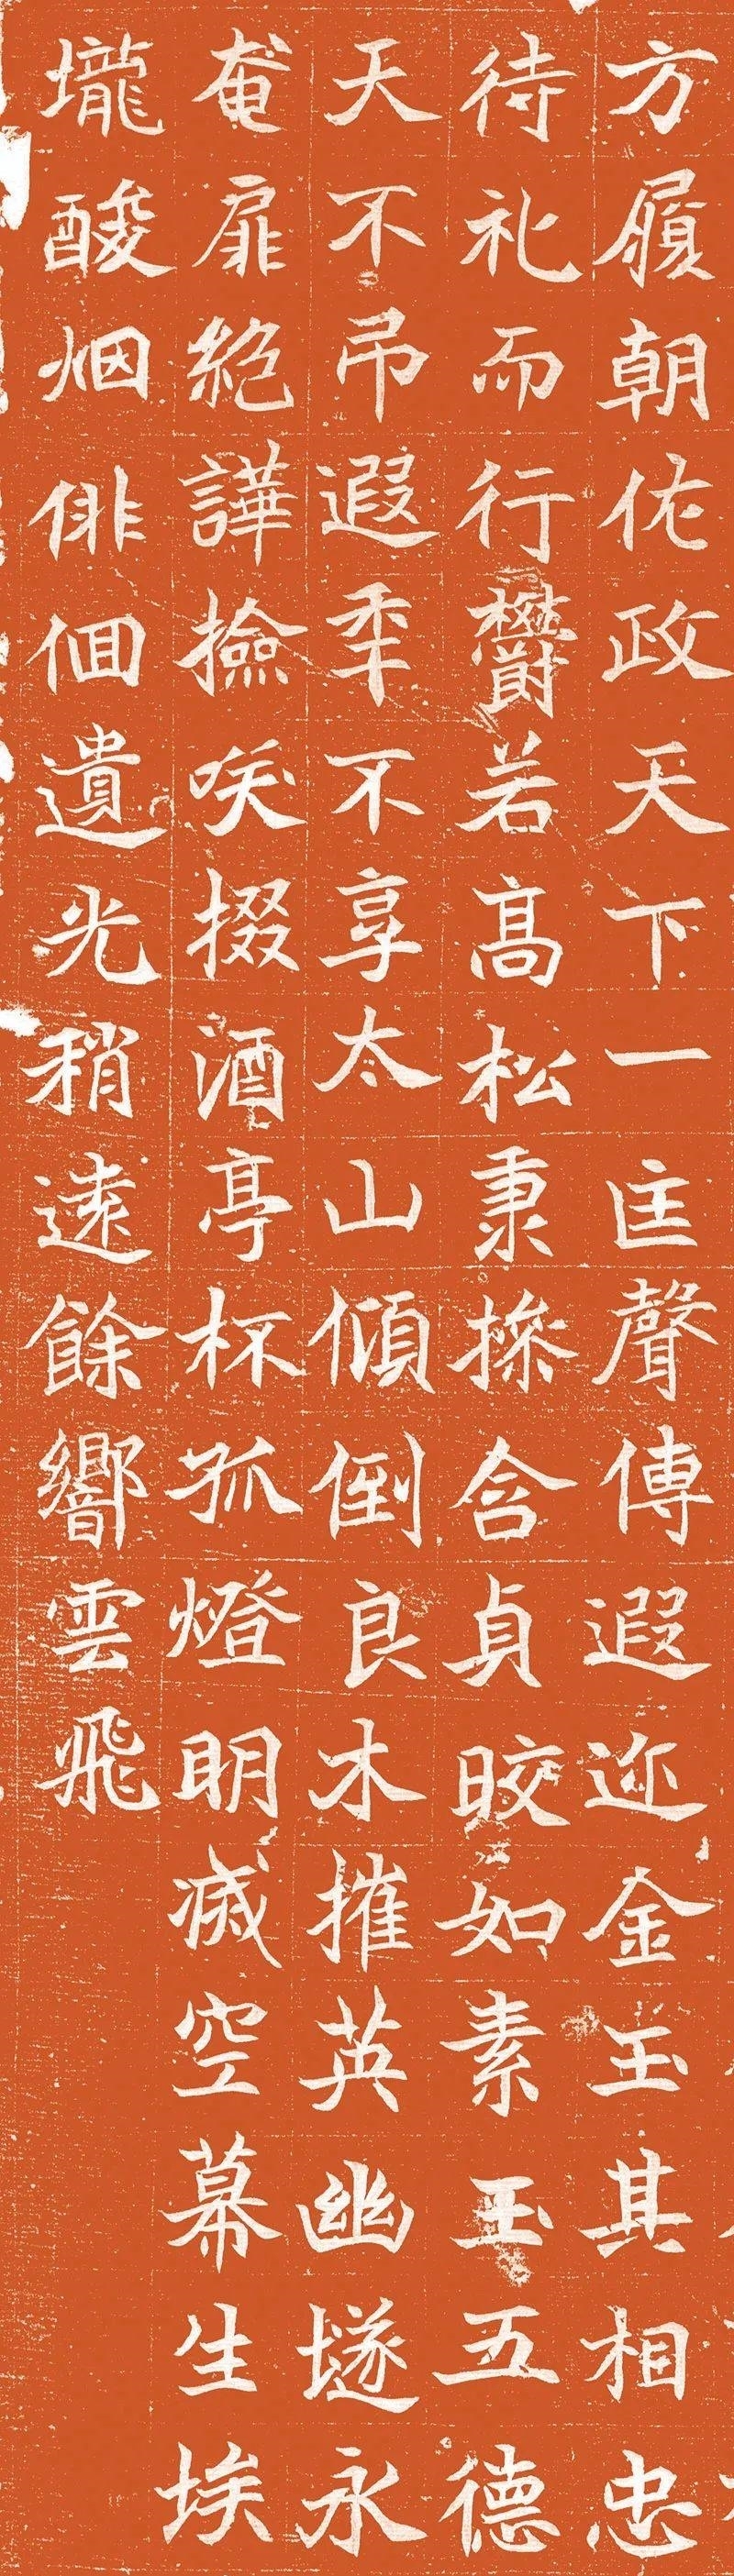 方履朝佐政天下一匡聲傳遐迩金玉其相忠
待礼而行欝若髙松秉操含貞晈如素玉五德
天不吊遐秊不享太山傾倒良木摧英幽壝永
奄扉絶譁撿咲掇酒亭杯孤燈明滅空幕生埃
壠酸烟俳佪遺光稍遠餘響雲飛